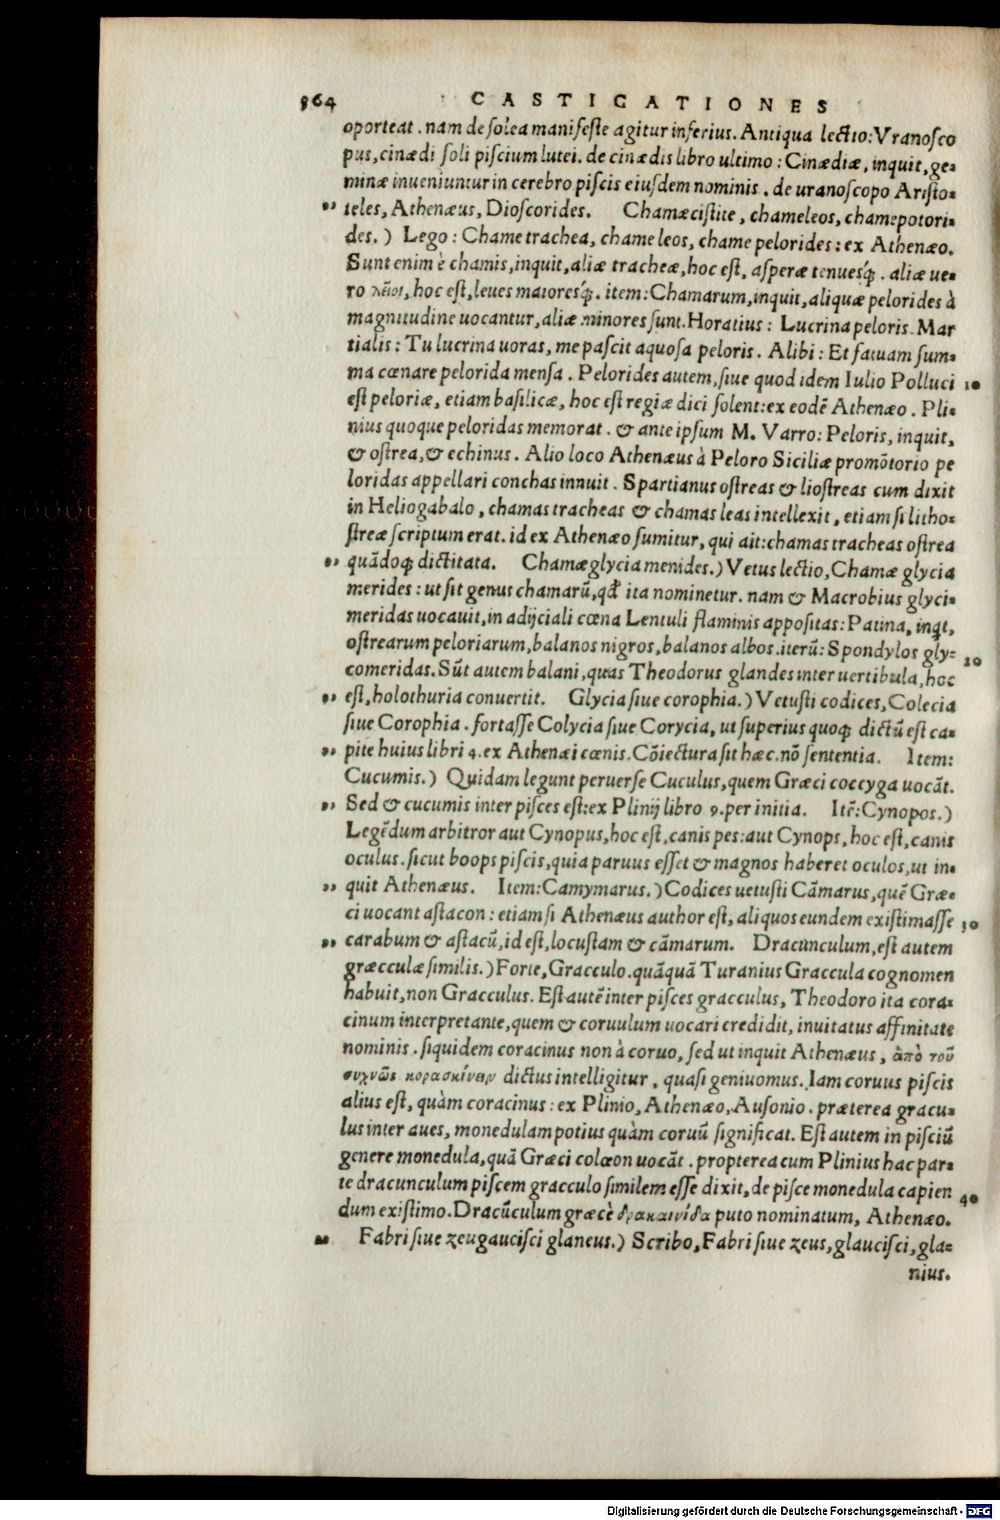 964 CASTIGATIONES
oporteat . nam de ſolea manifeſte agitur inferius. Antiqua lectio: Vranoſco
pus, cinædi ſoli piſcium lutei. de cinædis libro ultimo : Cinædiæ, inquit, ge=
minæ inueniuntur in cerebro piſcis eiuſdem nominis . de uranoſcopo Ariſto=
teles, Athenæus, Dioſcorides. Chamæciſtite, chameleos, chamepotori=
des. ) Lego : Chame trachea, chame leos, chame pelorides : ex Athenæo.
Sunt enim è chamis, inquit, aliæ tracheæ, hoc eſt, aſperæ tenuesq́; . aliæ ue=
ro λεῖοι, hoc eſt, leues maioresq́;. item: Chamarum, inquit, aliquæ pelorides à
magnitudine uocantur, aliæ minores ſunt. Horatius : Lucrina peloris. Mar
tialis : Tu lucrina uoras, me paſcit aquoſa peloris . Alibi : Et fatuam ſum=
ma cœnare pelorida menſa . Pelorides autem, ſiue quod idem Iulio Polluci 10
eſt peloriæ, etiam baſilicæ, hoc eſt regiæ dici ſolent: ex eodē Athenæo . Pli=
nius quoque peloridas memorat . & ante ipſum M. Varro: Peloris, inquit,
& oſtrea, & echinus . Alio loco Athenæus à Peloro Siciliæ promōtorio pe
loridas appellari conchas innuit . Spartianus oſtreas & lioſtreas cum dixit
in Heliogabalo , chamas tracheas & chamas leas intellexit , etiam ſi litho=
ſtreæ ſcriptum erat. id ex Athenæo ſumitur, qui ait: chamas tracheas oſtrea
quādoq; dictitata. Chamæglycia menides.) Vetus lectio, Chamæ glycia
merides : ut ſit genus chamarū, qđ ita nominetur. nam & Macrobius glyci=
meridas uocauit, in adijciali cœna Lentuli flaminis appoſitas: Patina, inq̇t,
oſtrearum peloriarum, balanos nigros, balanos albos. iterū: Spondylos gly= 20
comeridas. Sūt autem balani, quas Theodorus glandes inter uertibula, hoc
eſt, holothuria conuertit. Glycia ſiue corophia.) Vetuſti codices, Colecia
ſiue Corophia . fortaſſe Colycia ſiue Corycia, ut ſuperius quoq; dictū eſt ca=
pite huius libri 4. ex Athenæi cœnis. Cōiectura ſit hæc. nō ſententia. Item:
Cucumis.) Quidam legunt peruerſe Cuculus, quem Græci coccyga uocāt.
Sed & cucumis inter piſces eſt: ex Plinij libro 9. per initia. Itē: Cynopos.)
Legēdum arbitror aut Cynopus, hoc eſt, canis pes: aut Cynops, hoc eſt, canis
oculus . ſicut boops piſcis, quia paruus eſſet & magnos haberet oculos, ut in=
quit Athenæus. Item: Camymarus. ) Codices uetuſti Cāmarus, quē Græ=
ci uocant aſtacon : etiam ſi Athenæus author eſt, aliquos eundem exiſtimaſſe 30
carabum & aſtacū, id eſt, locuſtam & cāmarum. Dracunculum, eſt autem
græcculæ ſimilis.) Forte, Gracculo. quāquā Turanius Graccula cognomen
habuit, non Gracculus. Eſt autē inter piſces gracculus, Theodoro ita cora=
cinum interpretante, quem & coruulum uocari credidit, inuitatus affinitate
nominis . ſiquidem coracinus non à coruo, ſed ut inquit Athenæus , ἀπὸ τοῦ
συχνῶς κορασκίνειν dictus intelligitur , quaſi geniuomus. Iam coruus piſcis
alius eſt, quàm coracinus : ex Plinio, Athenæo, Auſonio . præterea gracu=
lus inter aues, monedulam potius quàm coruū ſignificat. Eſt autem in piſciū
genere monedula, quā Græci colœon uocāt . propterea cum Plinius hac par=
te dracunculum piſcem gracculo ſimilem eſſe dixit, de piſce monedula capien 40
dum exiſtimo. Dracūculum græcè δρακαινίδα puto nominatum, Athenæo.
Fabri ſiue zeugauciſci glaneus.) Scribo, Fabri ſiue zeus, glauciſci, gla=
nius.
Digitalisierung gefördert durch die Deutsche Forschungsgemeinschaft - DFG